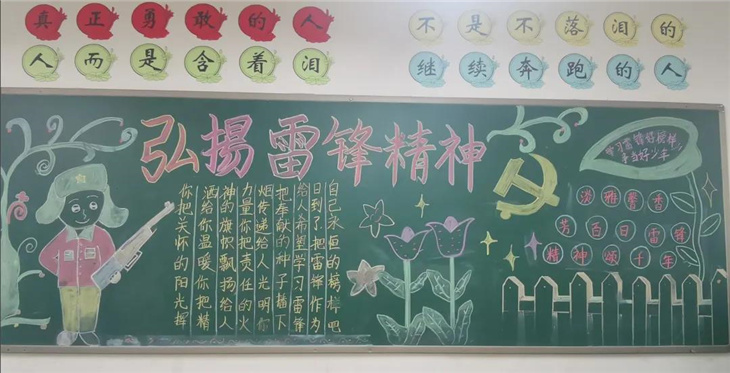 真正勇敢的人
不是不落泪的
人而是含着泪
继续奔跑的人
弘揚雷锋精神
你把关怀的阳光挥
洒给你温暖你把精
神的旗帜飘扬给人
力量你把责任的火
炬传递给人光明你
把奉献的种子播下
给人希望学习雷锋
日到了把雷锋作为
自己永恒的榜样吧
学习雷锋好榜样
争当好少年
淡雅馨香
芳百日雷锋
精神颂十年